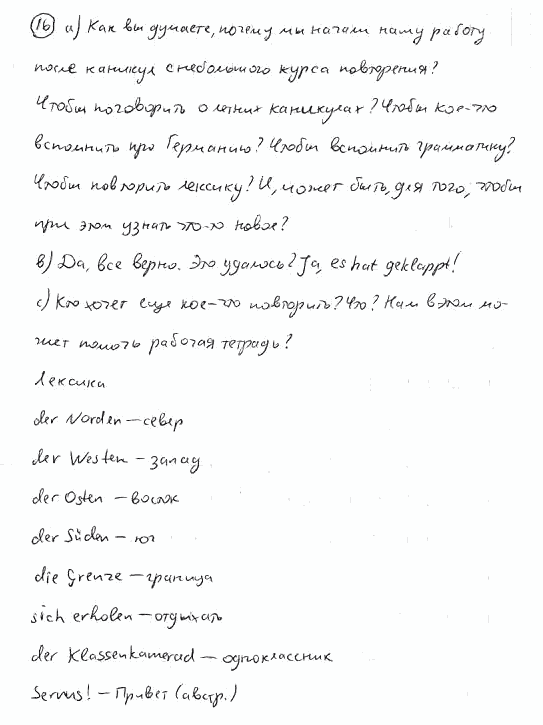 16 а) Как вы думаете, почему мы начали нашу работу
после каникул с небольшого курса повторения?
Чтобы поговорить о летних каникулах? Чтобы кое-что
вспомнить про Германию? Чтобы вспомнить грамматику?
Чтобы повторить лексику? И, может быть, для того, чтобы
при этом узнать что-то новое?
b) Да, все верно. Это удалось? Ja, es hat geklappt!
c) Кто хочет еще кое-что повторить? Что? Нам в этом мо-
жет помочь рабочая тетрадь?
Лексика
der Norden – север
der Westen – запад
der Osten – восток
der Süden – юг
die Grenze – граница
sich erholen – отдыхать
der Klassenkamerad – одноклассник
Servus! – Привет (австр.)